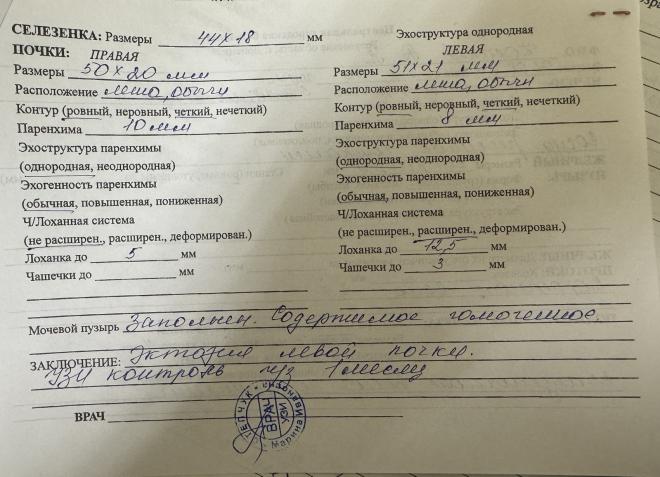 СЕЛЕЗЕНКА: Размеры 44х18 мм Эхоструктура однородная
ПОЧКИ: ПРАВАЯ ЛЕВАЯ
Размеры 50х20 мм Размеры 51х21 мм
Расположение обычн Расположение обычн
Контур (ровный, неровный, четкий, нечеткий) Контур (ровный, неровный, четкий, нечеткий)
Паренхима 10 мм Паренхима 8 мм
Эхоструктура паренхимы Эхоструктура паренхимы
(однородная, неоднородная) (однородная, неоднородная)
Эхогенность паренхимы Эхогенность паренхимы
(обычная, повышенная, пониженная) (обычная, повышенная, пониженная)
Ч/Лоханная система Ч/Лоханная система
(не расширен., расширен., деформирован.) (не расширен., расширен., деформирован.)
Лоханка до 5 мм Лоханка до 12,5 мм
Чашечки до мм Чашечки до 3 мм
Мочевой пузырь Заполнен. Содержимое гомогенное.
ЗАКЛЮЧЕНИЕ: левой почки.
УЗИ контроль ч/з 1 месяц
ВРАЧ
ВРАЧ
УЗИ